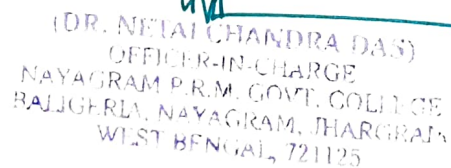 (DR. NETAI CHANDRA DAS)
OFFICER-IN-CHARGE
NAYAGRAM P.R.M. GOVT. COLLEGE
BALIGERIA, NAYAGRAM, JHARGRAM
WEST BENGAL, 721125